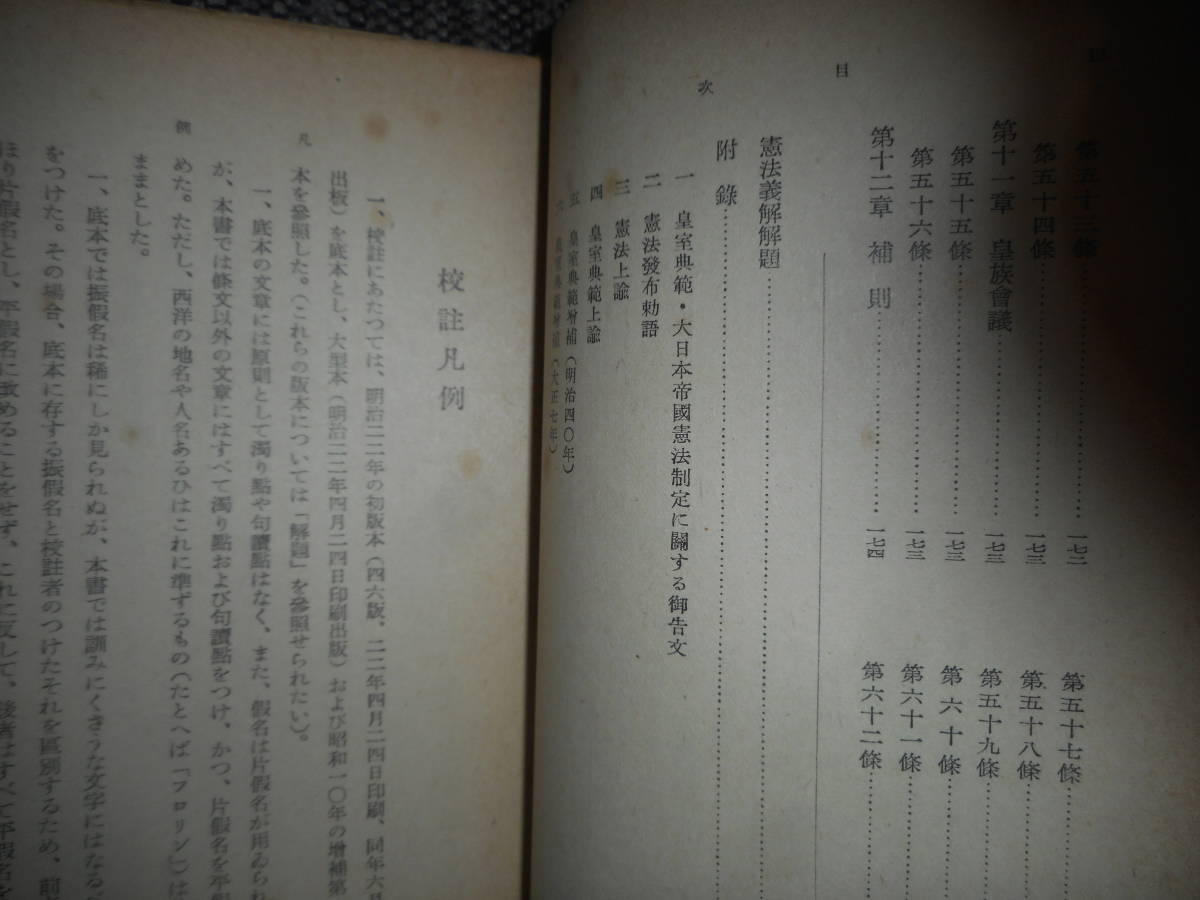 目
次
第五十三條 一七二
第五十四條 一七三
第十一章 皇族會議 一七三
第五十五條 一七三
第五十六條 一七三
第十二章 補則 一七四
第五十七條
第五十八條
第五十九條
第六十條
第六十一條
第六十二條
憲法義解解題
附錄
一 皇室典範・大日本帝國憲法制定に關する御告文
二 憲法發布勅語
三 憲法上諭
四 皇室典範上諭
五 皇室典範增補（明治四〇年）
六 皇室典範增補（大正七年）
凡
例
校註凡例
一、校註にあたつては、明治二二年の初版本（四六版、二二年四月二四日印刷、同年六月
出板）を底本とし、大型本（明治二二年四月二四日印刷出版）および昭和一〇年の增補第
本を參照した。（これらの版本については「解題」を參照せられたい）。
一、底本の文章には原則として濁り點や句讀點はなく、また、假名は片假名が用ゐられ
が、本書では條文以外の文章にはすべて濁り點および句讀點をつけ、かつ、片假名を平假
めた。ただし、西洋の地名や人名あるひはこれに準ずるもの（たとへば「フロリン」）は
ままとした。
一、底本では振假名は稀にしか見られぬが、本書では訓みにくさうな文字にはなる
をつけた。その場合、底本に存する振假名と校註者のつけたそれを區別するため、前
ほり片假名とし、平假名に改めることをせず、これに反して、後者はすべて平假名を